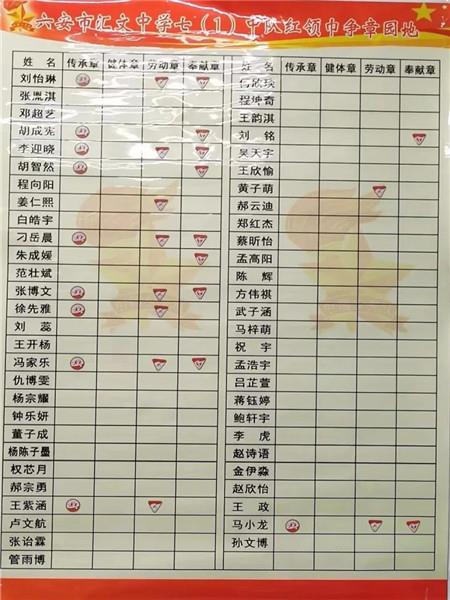 六安市汇文中学七（1）中队红领巾争章园地
姓 名 传承章 健体章 劳动章 奉献章 姓 名 传承章 健体章 劳动章 奉献章
刘怡琳 欣琰
张胤淇 程坤奇
邓超艺 王韵淇
胡成宪 刘 铭
李迎晓 吴天宇
胡智然 王欣愉
程向阳 黄子萌
姜仁熙 郝云迪
白皓宇 郑红杰
刁岳晨 蔡昕怡
朱成媛 孟高阳
范壮斌 陈 辉
张博文 方伟祺
徐先雅 武子涵
刘 蕊 马梓萌
王开杨 祝 宇
冯家乐 孟浩宇
仇博雯 吕芷萱
杨宗耀 蒋钰婷
钟乐妍 鲍轩宇
董子成 李 虎
杨陈子墨 赵诗语
权芯月 金伊淼
郝宗勇 赵欣怡
王紫涵 王 政
卢文航 马小龙
张诒霖 孙文博
管雨博